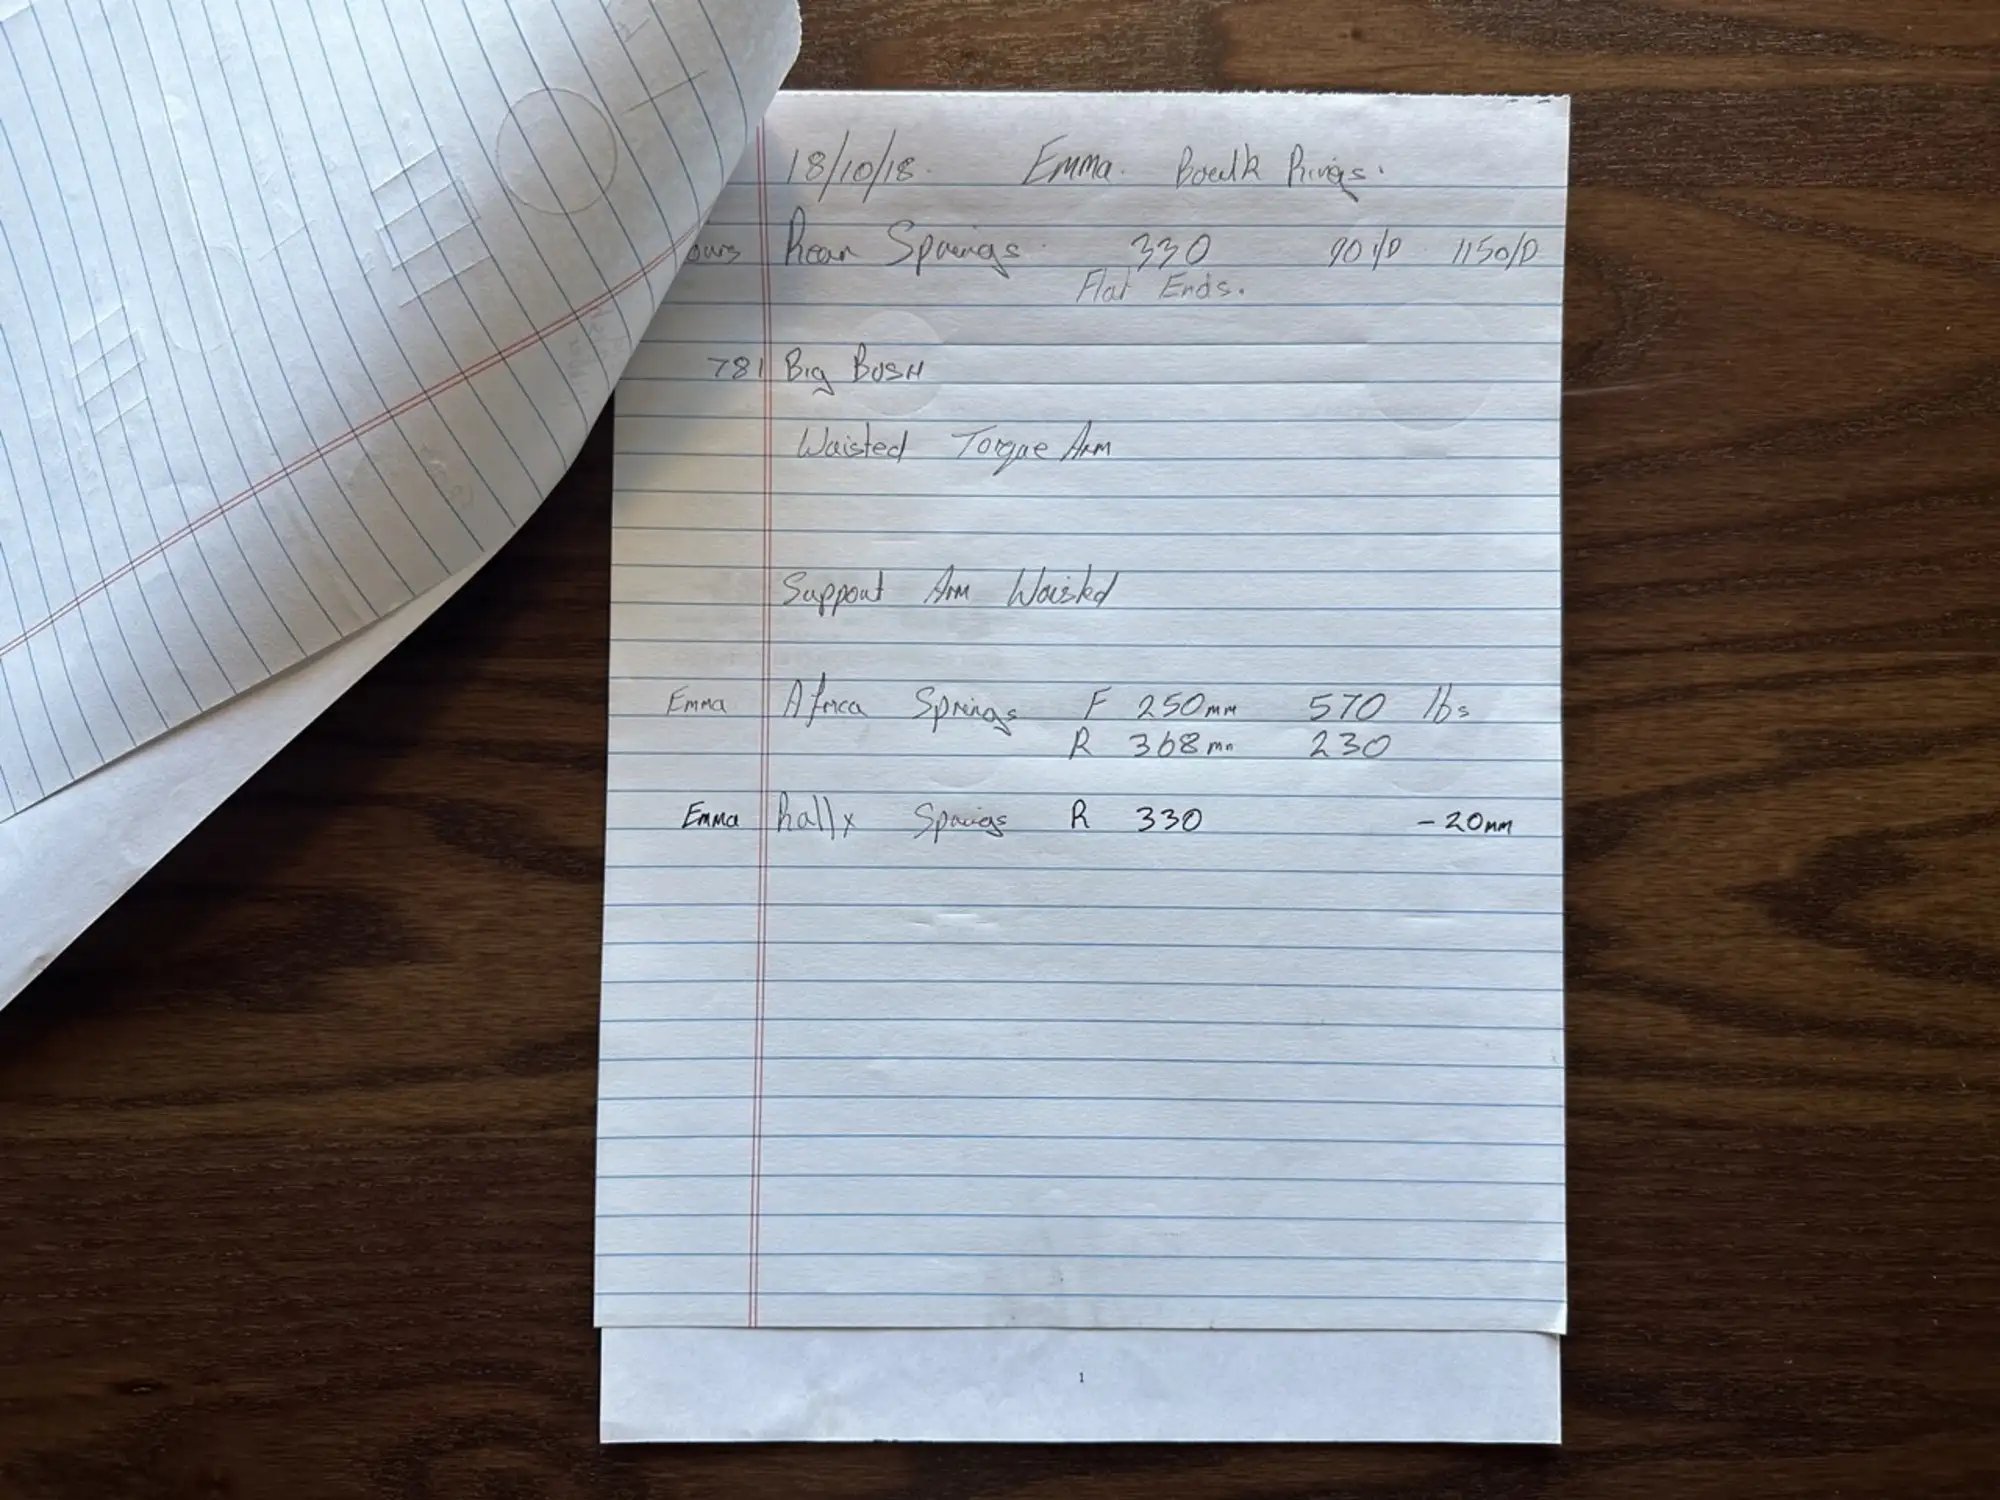 18/10/18. Emma.
ours Rear Springs. 330 90 I/D 115 O/D
Flat Ends.
781 Big BUSH
Waisted Torque Arm
Support Arm Waisted
Emma Africa Springs F 250mm 570 lbs
R 368mm 230
Emma Rallx Springs R 330 -20mm
1